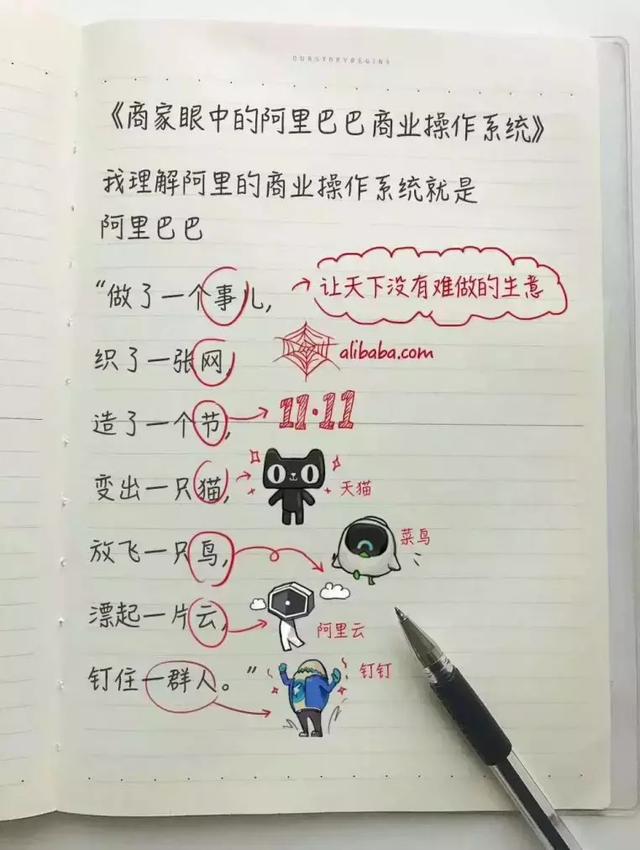 OURSTORYBEGINS
《商家眼中的阿里巴巴商业操作系统》
我理解阿里的商业操作系统就是
阿里巴巴
“做了一个事儿,
让天下没有难做的生意
织了一张网,
alibaba.com
造了一个节,
11·11
变出一只猫,
天猫
放飞一只鸟,
菜鸟
漂起一片云,
阿里云
钉住一群人。”
钉钉